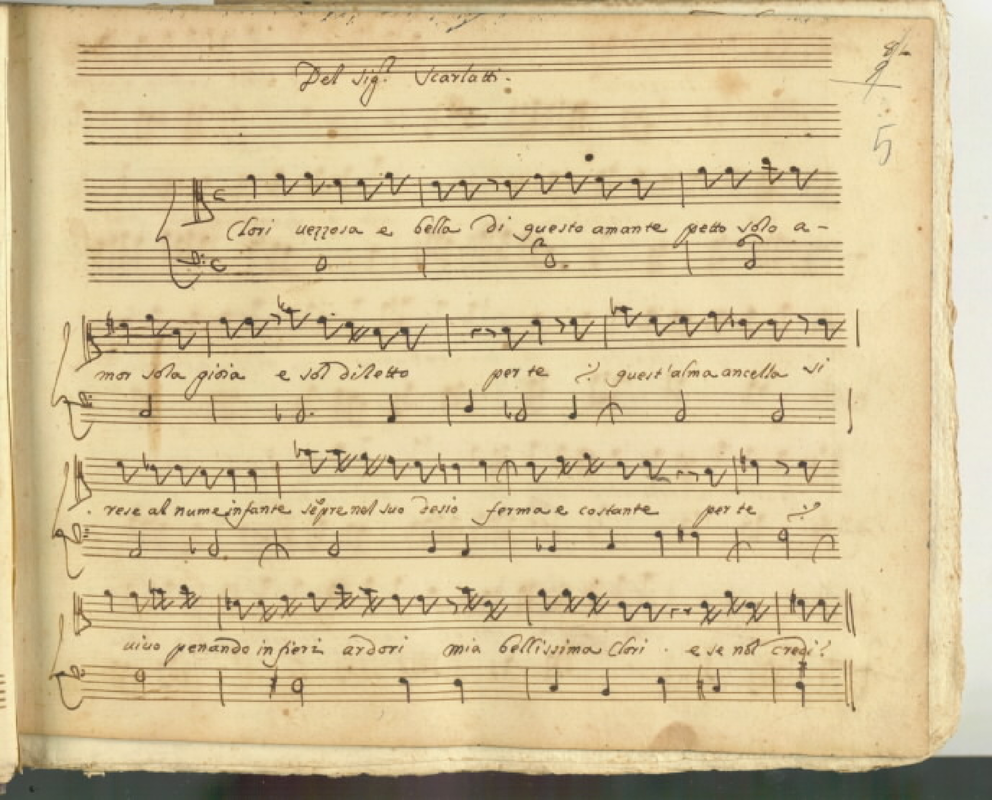 Del sig.r Scarlatti.
9
5
Clori uezzosa e bella di questo amante petto solo a-
mor sola gioia e sol diletto per te quest'alma ancella si
rese al nume infante sẽpre nel suo desio ferma e costante per te
uiuo penando in fieri ardori mia bellissima Clori. e se nol credi?